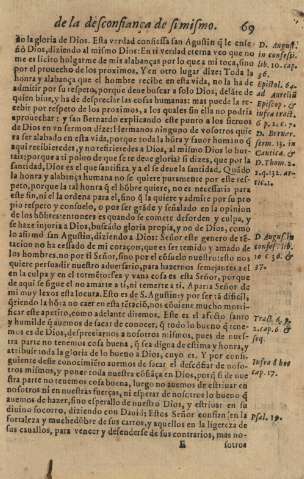 de la desconfiança de si mismo. 69
do la gloria de Dios. Esta verdad confiessa san Agustin q̃ le ense
ñò Dios, diziendo al mismo Dios: En ti verdad eterna veo que no
me es licito holgarme de mis alabanças por lo que a mi toca, sino
por el prouecho de los proximos. Y en otro lugar dize: Toda la
honra y alabança que el hombre recibe en esta vida, no la ha de
admitir por su respeto, porque deue buscar a solo Dios, de
quien biue, y ha de despreciar las cosas humanas: mas puede la re-
cebir por respeto de los proximos, a los quales sin ella no podria
aprouechar: y san Bernardo explicando este punto a los sieruos
de Dios en vn sermon dize: Hermanos ninguno de vosotros quie
ra ser alabado en esta vida, porque toda la hõra y fauor humano q̃
aqui recibieredes, y no refirieredes a Dios, al mismo Dios lo hur-
tais; porque a ti poluo de que se te deue gloria? si dizes, que por la
santidad, Dios es el que santifica, y a el se deue la santidad. Quãdo
la honra y alabança humana no se quiere puramente por este res-
peto, porque la tal honra q̃ el hõbre quiere, no es necessaria para
este fin, ni el la ordena para el, sino q̃ la quiere y admite por su pro
pio respeto y consuelo, o por ser grãde y señalado en la opinion
de los hõbres: entonces es quando se comete desorden y culpa, y
se haze injuria a Dios, buscãdo gloria propia, y no de Dios, como
lo afirma san Agustin, diziendo a Dios: Señor este genero de tẽ-
tacion no ha cessado de mi coraçon, que es ser temido y amado de
los hombres, no por ti Señor, sino por el consuelo nuestro: esto nos
quiere persuadir nuestro aduersario, para hazernos semejantes a el
en la culpa y en el tormento: es y vana cosa es esta Señor, porque
de aqui se sigue el no amarte a ti, ni temerte a ti. Aparta Señor de
mi muy lexos esta locura. Esto es de S. Agustin: y por ser tã dificil,
q̃riendo la hõra no caer en esta tẽtacion, nos cõuiene mucho morti-
ficar este apetito, como adelante diremos. Este es el afecto santo
y humilde q̃ auemos de sacar de conocer, q̃ todo lo bueno q̃ tene-
mos es de Dios, despreciarnos a nosotros mismos, pues de nues-
tra parte no tenemos cosa buena, q̃ sea digna de estima y honra, y
atribuir toda la gloria de lo bueno a Dios, cuyo es. Y por consi-
guiente deste conocimiẽto auemos de sacar el descõfiar de noso-
tros mismos, y poner toda nuestra cõfiãça en Dios, porq̃ si de nue
stra parte no tenemos cosa buena, luego no auemos de estriuar en
nosotros ni en nuestras fuerças, ni esperar de nosotros lo bueno q̃
auemos de hazer, sino esperallo de nuestro Dios, y estriuar en su
diuino socorro, diziendo con Dauid: Estos Señor confian en la
fortaleza y muchedũbre de sus carros, y aquellos en la ligereza de
sus cauallos, para vencer y defenderse de sus contrarios, mas no-
sotros
D. August.
in confess.
lib. 10. cap.
36.
Epistol. 64.
ad Aurelio
Episcop. &
D. Bernar.
serm. 13. in
Cantica. &
D. Thom. 2.
2. q. 132. ar-
tic. 1.
D. August. in
confess. lib.
10 c. 36. &
37.
Infra d hoc
cap. 17.
Psal. 19.